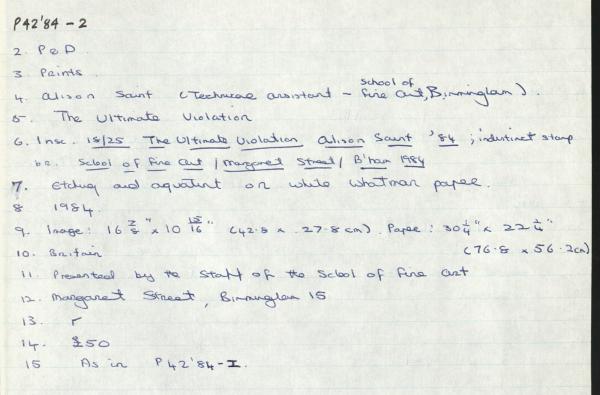 P42'84 - 2
2. P & D.
3. Prints.
4. Alison Saint (Technical assistant - School of Fine Art, Birmingham).
5. The Ultimate Violation
6. Insc. 15/25 The Ultimate Violation Alison Saint '84 ; indistinct stamp
b.r. School of Fine Art / Margaret Street / B'ham 1984
7. Etching and aquatint on white Whatman paper.
8 1984.
9. Image: 16 "x 10 15/16" (42.8 x .27.8 cm). Paper: 30 1/4" x 22 1/4"
(76.8 x 56.2cm)
10. Britain
11. Presented by the Staff of the School of Fine Art
12. Margaret Street, Birmingham 15
13. r
14. £50
15 As in P42'84-I.